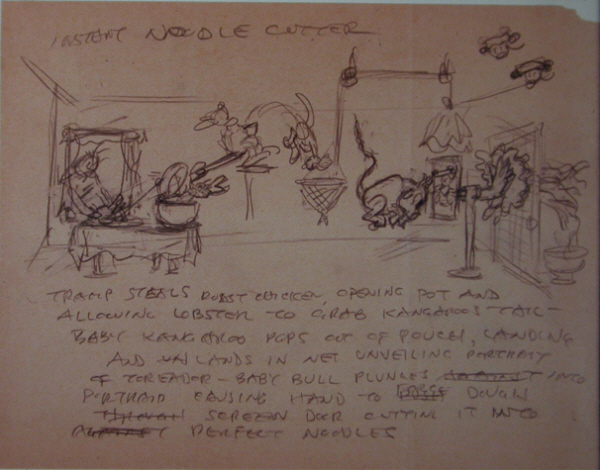 INSTANT NOODLE CUTTER
TRAMP STEALS ROAST CHICKEN, OPENING POT AND
ALLOWING LOBSTER TO GRAB KANGAROOS TAIL -
BABY KANGAROO POPS OUT OF POUCH, LANDING
AND LANDS IN NET UNVEILING PORTRAIT
OF TOREADOR - BABY BULL PLUNGES INTO
PORTRAID CAUSING HAND TO DOUGH
THROUGH SCREEN DOOR CUTTING IT INTO
PERFECT NOODLES